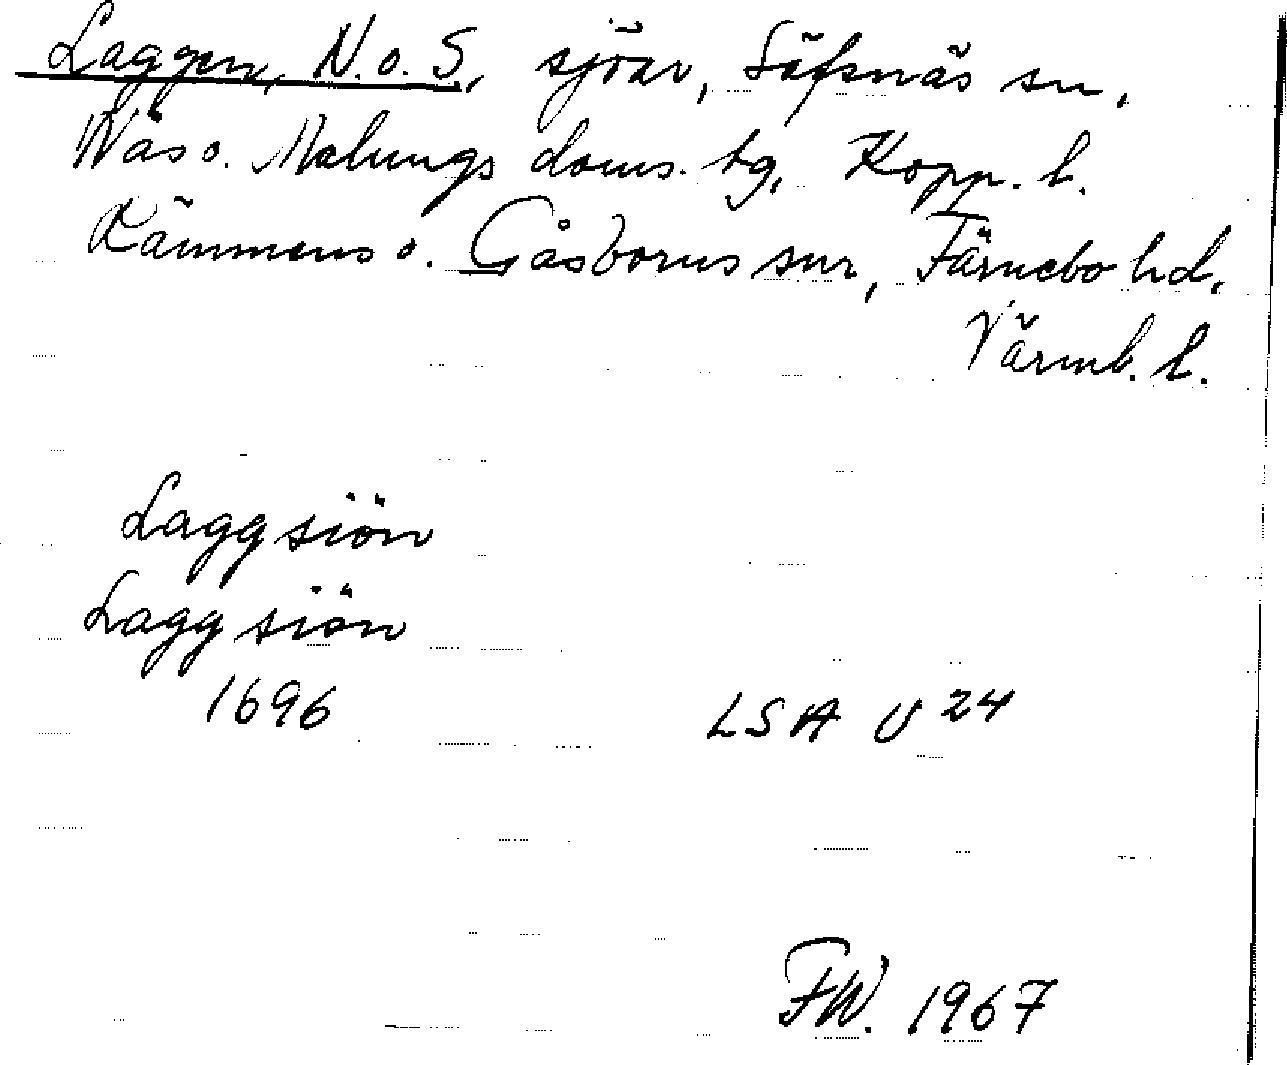 Laggen, N. o. S, sjöar, Säfsnäs sn,
Näs o. Malungs doms. tg, Kopp. l.
Rämmens o. Gåsborns snr, Färnebo hd,
Värml. l.
Laggsiön
Lagg siön
1696 LSA U 24
FW. 1967